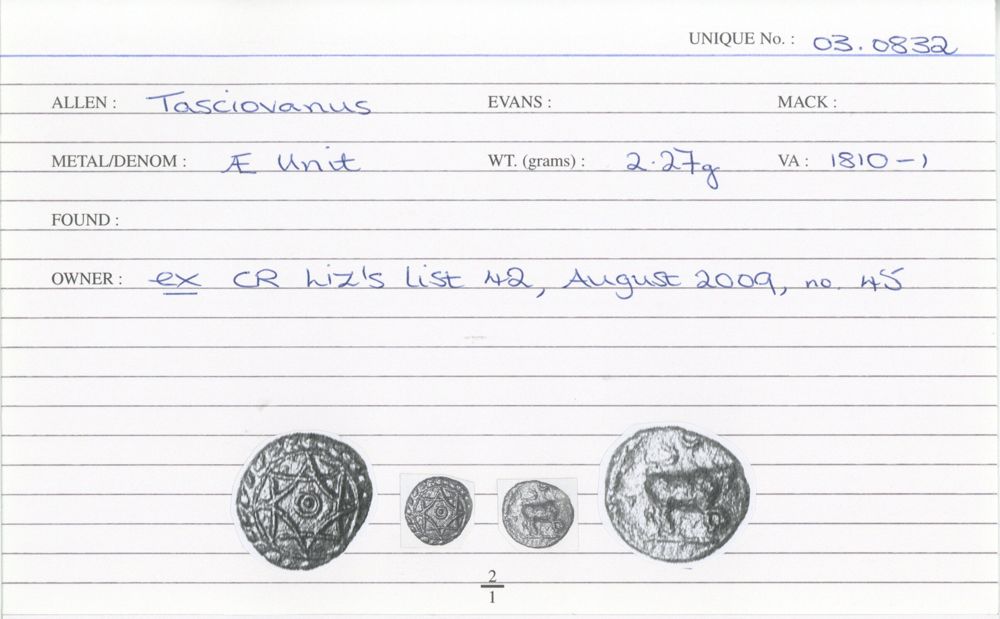 UNIQUE No. : 03.0832
ALLEN : Tasciovanus EVANS : MACK :
METAL/DENOM : Æ Unit WT. (grams) : 2.27g VA : 1810-1
FOUND :
OWNER : ex CR Liz's list 42, August 2009, no. 45
2
1